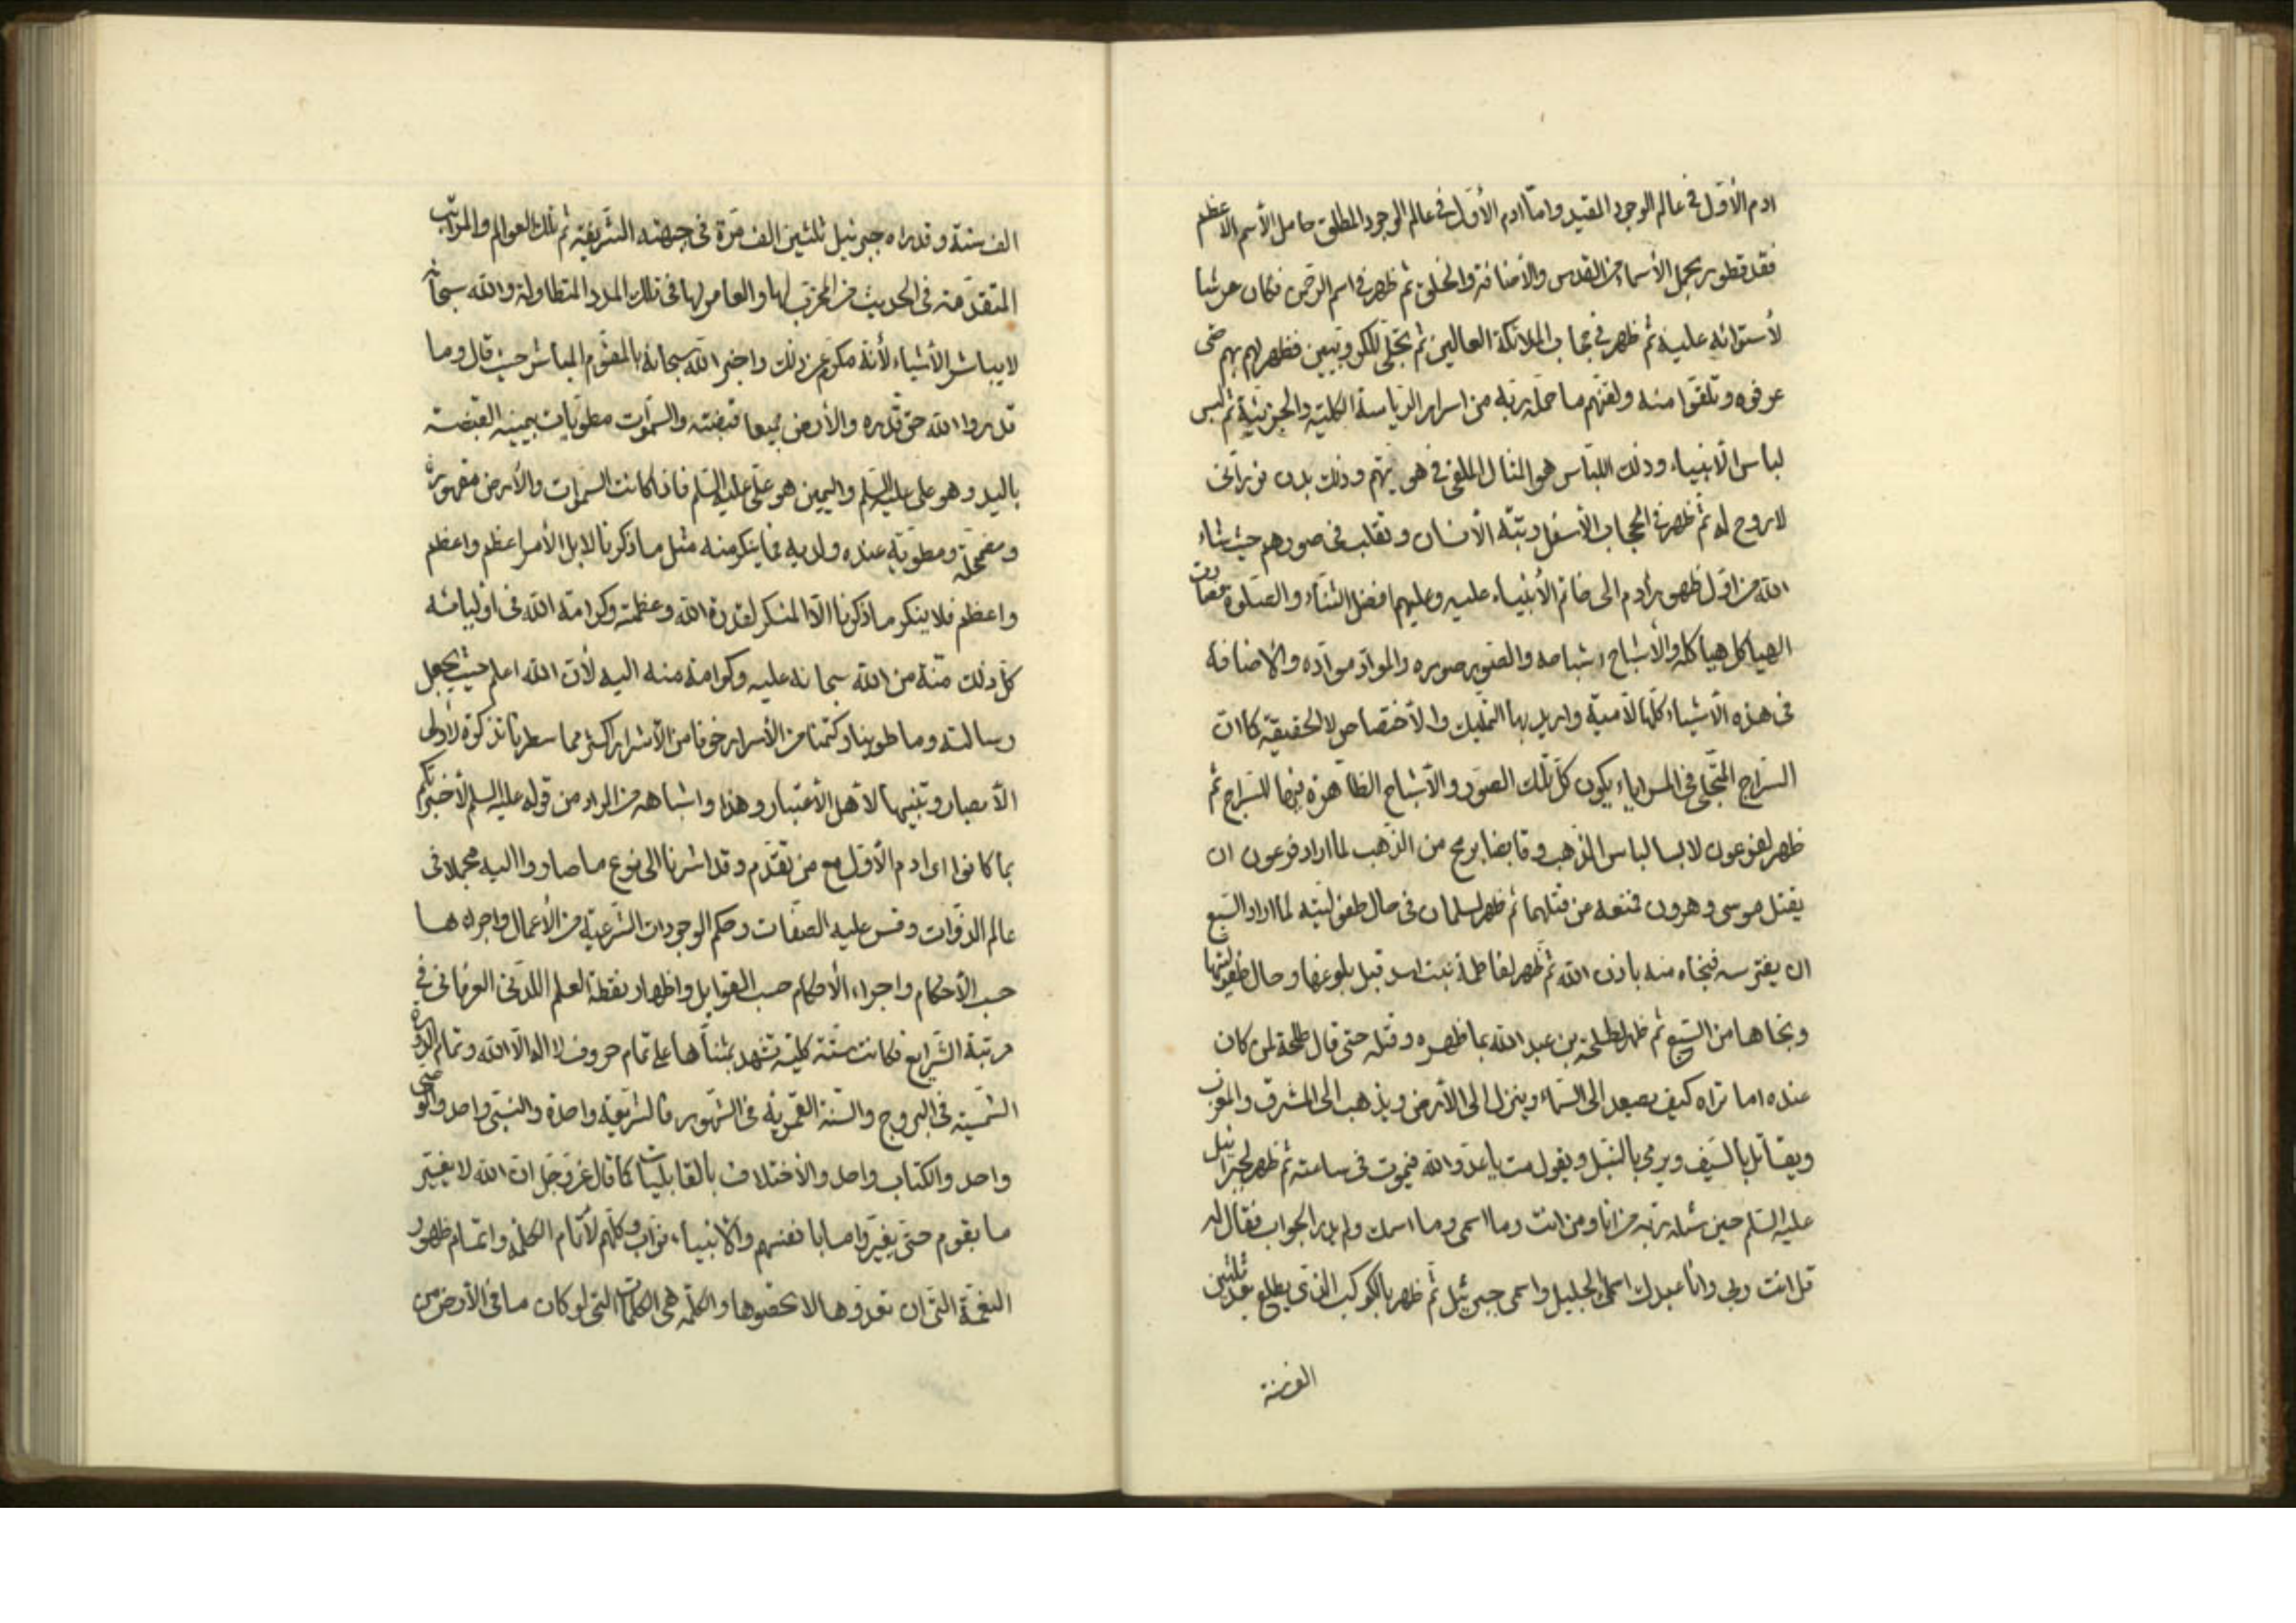 ادم الأوّل في عالم الوجود المقيد وامّا ادم الأوّل في عالم الوجود المطلق حامل الأسم الاعظم
فقد تطور بحمل الأسماء من القدس والأضافة والخلق ثم ظهر في اسم الرحمن فكان عرشا
لأستوائه عليه ثم ظهر في حجاب الملائكة العالين ثم تجلّى للكروبيين فظهر لهم بهم حتى
عرفوه وتلقّوا منه ولقنهم ما حمله ربّه من اسرار الرياسة الكلية والجزئية ثم لبس
لباس الأنبياء وذلك اللباس هو المثال الملقى في هويّتهم وذلك بدن نوراني
لا روح له ثم ظهر في الحجاب الأسفل ورتبة الأنسان وتقلب في صورهم حيث شاء
الله من اوّل ظهور ادم الى خاتم الأنبياء عليه وعليهم افضل الثناء والصلوة فصارت
الهياكل هياكله والأشباح اشباحه والصور صوره والمواد موادّه والاضافة
في هذه الأشياء كلّها لاميّة واريد بها التمليك والأختصاص لا الحقيقة كما انّ
السّراج المتجلّي في المرايا يكون كلّ تلك الصور والأشباح الظاهرة فيها للسّراج ثم
ظهر لفرعون لابسا لباس الذّهب وقابضا برمح من الذّهب لما اراد فرعون ان
يقتل موسى وهرون فمنعه من قتلهما ثم ظهر لسلمان في حال طفوليّته لما اراد السّبع
ان يفترسه فنجاه منه باذن الله ثم ظهر لفاطمة بنت اسد قبل بلوغها وحال طفوليتها
ونجاها من السّبع ثم ظهر لطلحة بن عبد الله بما ظهره وقتله حتى قال طلحة لمن كان
عنده اما تراه كيف يصعد الى السّماء وينزل الى الأرض ويذهب الى المشرق والمغرب
ويقاتل بالسّيف ويرمى بالنبل ويقول مت يا عدوّ الله فيموت في ساعته ثم ظهر لجبرائيل
عليه السّلم حين سئله ربّه من انا ومن انت وما اسمي وما اسمك ولم يدر الجواب فقال له
قل انت ربي وانا عبدك اسمك الجليل واسمي جبرئيل ثم ظهر بالكوكب الذي يطلع بعد ثلثين
الف سنة
الف سنة وقد راه جبرئيل ثلثين الف مرّة في جبهته الشريفة ثم تلك العوالم والمراتب
المتقدّمة في الحديث من المخرّب لها والعامر لها في تلك المدد المتطاولة والله سبحانه
لا يباشر الأشياء لأنّه مكرّم عن ذلك واخبر الله سبحانه بالمقوّم المباشر حيث قال وما
قدروا الله حقّ قدره والأرض جميعا قبضته والسّموات مطويّات بيمينه القبضة
باليد وهو علي عليه السّلم واليمين هو عليّ عليه السّلم فاذا كانت السّموات والأرض مقهورة
ومضمحلّة ومطويّة عنده ولديه فما ينكر منه مثل ما ذكرنا لا بل الأمر اعظم واعظم
واعظم فلا ينكر ما ذكرنا الّا المنكر لقدرة الله وعظمته وكرامة الله في اوليائه
كلّ ذلك منّة من الله سبحانه عليه وكرامة منه اليه لأن الله اعلم حيث يجعل
رسالته وما طوينا وكتمنا من الأسرار خوفا من الأشرار اكثر مما سطرنا تذكرة لأولي
الأبصار وتنبيها لأهل الأعتبار وهذا واشباهه من المراد من قوله عليه السلم لأخبرتكم
بما كانوا اي ادم الأوّل مع من تقدّم وقد اشرنا الى نوع ما صاروا اليه مجملا في
عالم الذّوات وقس عليه الصفات وحكم الوجودات الشّرعيّة من الأعمال واجراءها
حسب الأحكام واجراء الأحكام حسب القوابل واظهار نقطة العلم اللّدنّي العرفاني في
مرتبة الشّرايع فكانت ستّة كليّة تشهد بثناءها على تمام حروف لا اله الّا الله وتمام الدّورة
الشّمسيّة في البروج والسّنة القمريّة في الشّهور فالشّريعة واحدة والنبّى واحد والوصي
واحد والكتاب واحد والأختلاف بالقابليات كما قال عزّ وجلّ ان الله لا يغيّر
ما بقوم حتّى يغيّروا ما بانفسهم والأنبياء نوّاب كلّهم لأتمام الكلمة واتمام ظهور
النعمة الّتي ان تعدّوها لا تحصوها والكلمة هي الكلمات التي لو كان ما في الأرض من